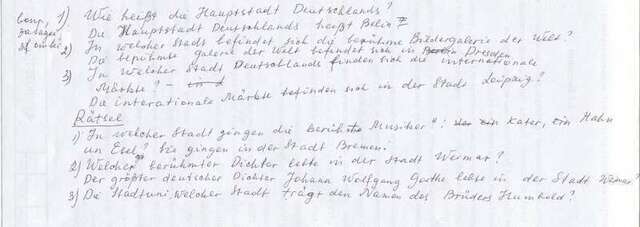 1) Wie heißt die Hauptstadt Deutschlands?
Die Hauptstadt Deutschlands heißt Belin
2) In welcher Stadt befindet sich die berühmte Bildergalerie der Welt?
Die berühmte Galerie der Welt befindet sich in Dresden
3) In welcher Stadt Deutschlands finden sich die internationale
Märkte? –
Die interationale Märkte befinden sich in der Stadt Leipzig?
Rätsel
1) In welcher Stadt gingen die berühmte Musiker": ein Kater, ein Hahn
un Esel? Sie gingen in der Stadt Bremen.
2) Welcher berühmter Dichter lebte in der Stadt Weimar?
Der größter deutscher Dichter Johann Wolfgang Goethe lebte in der Stadt Weimar?
3) Die Stadtuni, welcher Stadt trägt den Namen des Brüders Humbold?